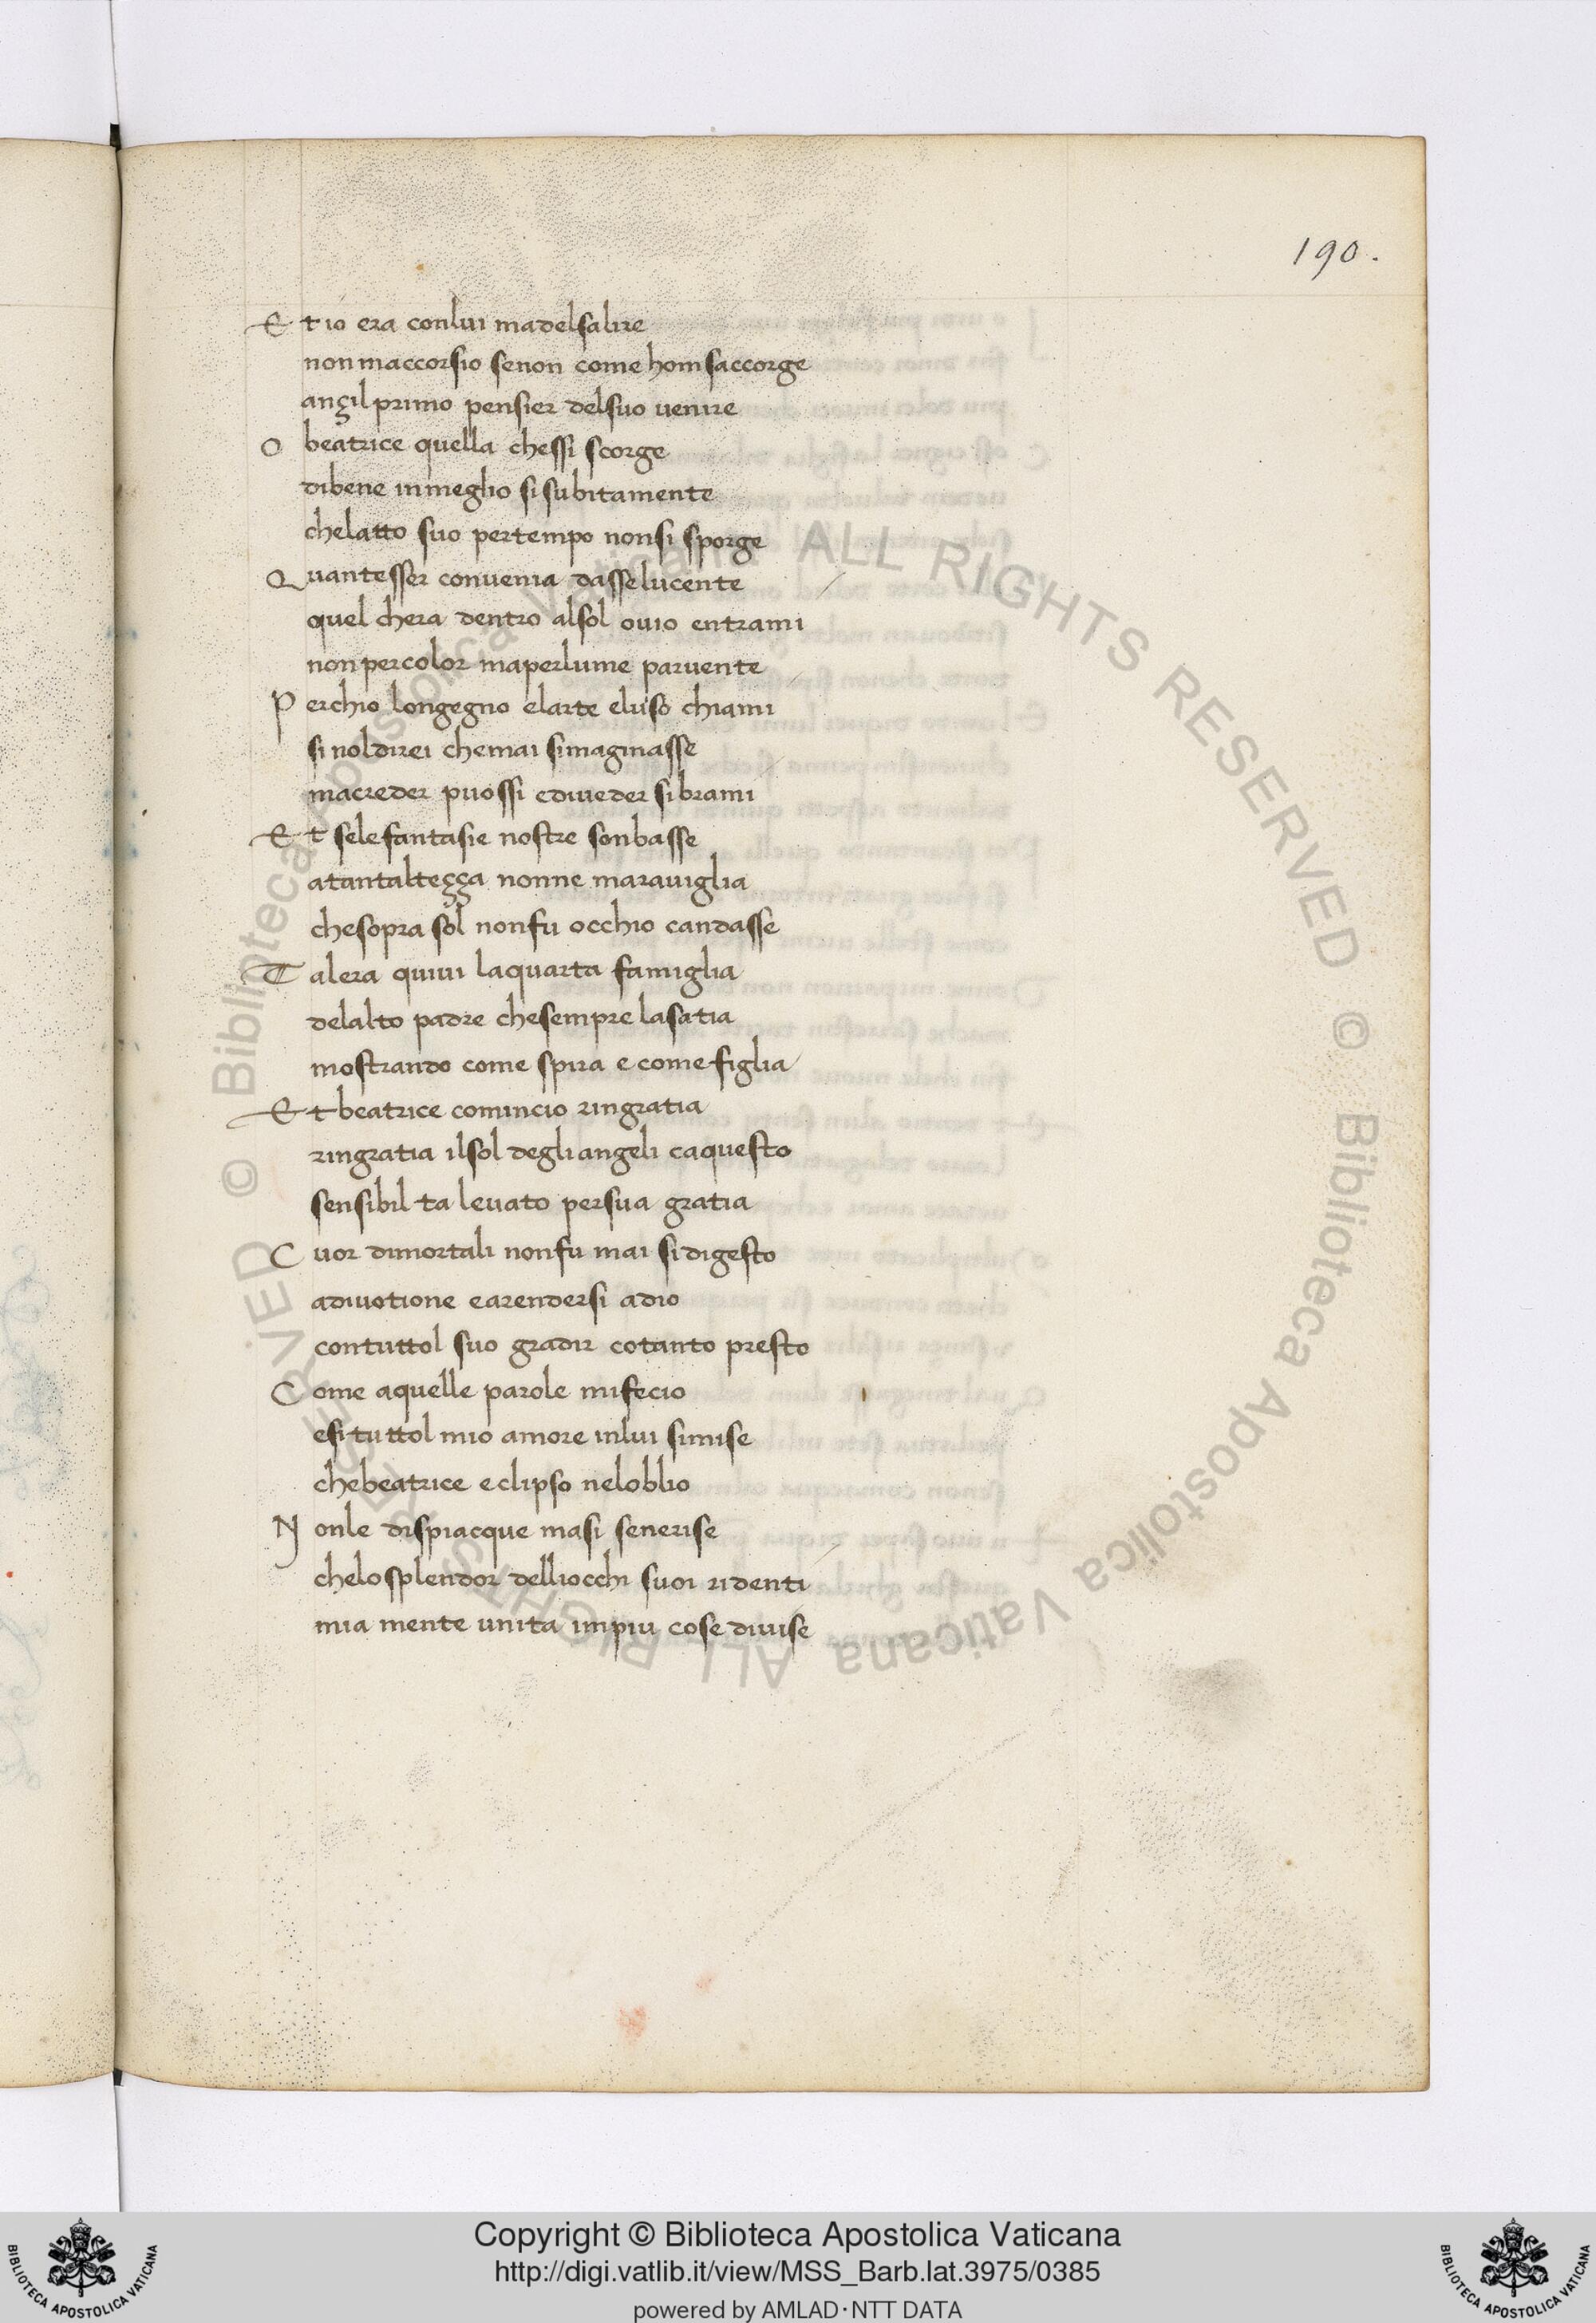 190.
Et io era conlui madelsalire
nonmaccorsio senon come hom saccorge
ançil primo pensier delsuo uenire
O beatrice quella chessi scorge
dibene inmeglio si subitamente
chelatto suo pertempo nonsi sporge
Quantesser conuenia dasse lucente
quel chera dentro alsol ouio entrami
nonpercolor maperlume paruente
Perchio longegno elarte eluso chiami
si noldirei chemai simaginasse
macreder puossi ediueder sibrami
Et sele fantasie nostre sonbasse
atantalteçça nonne marauiglia
chesopra sol nonfu occhio candasse
Talera quiui laquarta famiglia
delalto padre chesempre lasatia
mostrando come spira e come figlia
Et beatrice comincio ringratia
ringratia ilsol degliangeli caquesto
sensibil ta leuato persua gratia
Cuor dimortali nonfu mai si digesto
adiuotione earendersi adio
contuttol suo gradir cotanto presto
Come aquelle parole mifecio
esi tuttol mio amore inlui simise
chebeatrice eclipso neloblio
Nonle dispiacque masi senerise
chelo splendor delliocchi suoi ridenti
mia mente unita impiu cose diuise
© Biblioteca Apostolica Vaticana ALL RIGHTS RESERVED © Biblioteca Apostolica Vaticana ALL RIGHTS RESERVED
Copyright © Biblioteca Apostolica Vaticana
http://digi.vatlib.it/view/MSS_Barb.lat.3975/0385
powered by AMLAD·NTT DATA
BIBLIOTECA APOSTOLICA VATICANA
BIBLIOTECA APOSTOLICA VATICANA